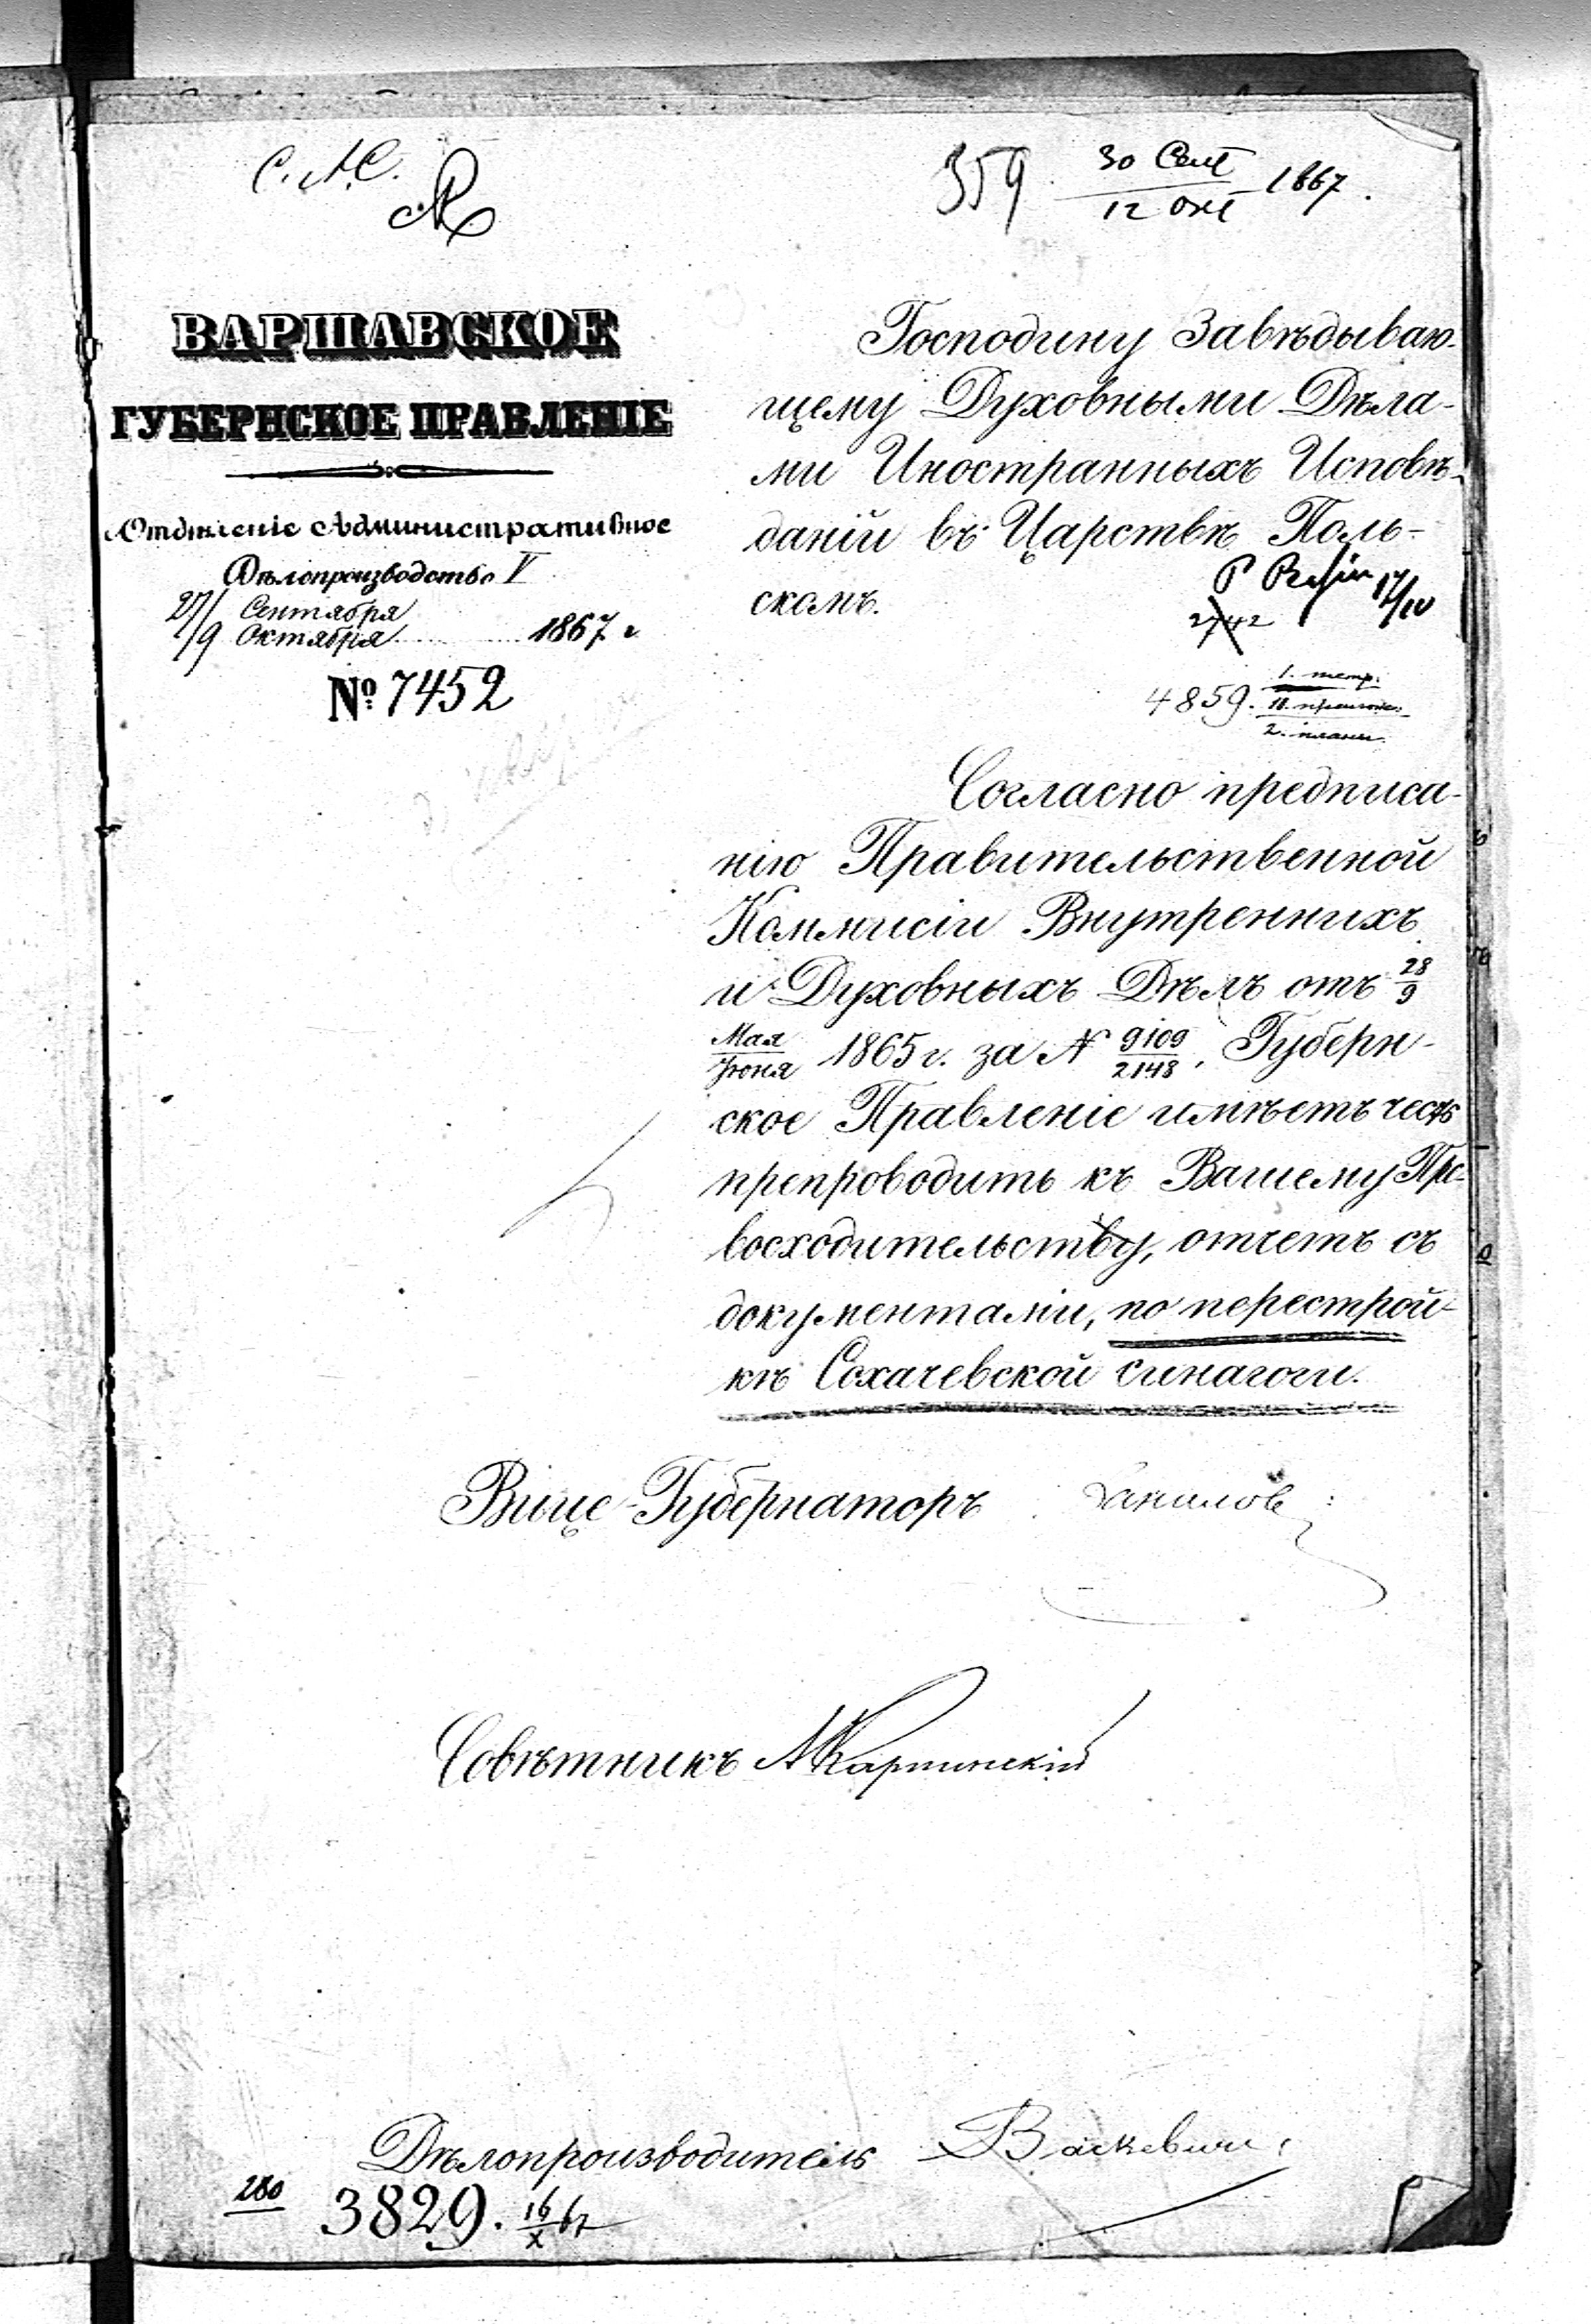 С. А. С.
359. 30 Сент / 12 Окт 1867.
ВАРШАВСКОЕ
ГУБЕРНСКОЕ ПРАВЛЕНІЕ
Отдѣленіе Административное
Дѣлопроизводство V
27/ Сентября
/9 Октября 1867 г.
№ 7452
Господину Завѣдываю-
щему Духовными Дѣла-
ми Иностранныхъ Исповѣ-
даній въ Царствѣ Поль-
скомъ.
17/10
2742
4859.
2. плана
Согласно предписа-
нію Правительственной
Коммисіи Внутреннихъ
и Духовныхъ Дѣлъ отъ 28/9
Мая/Іюня 1865 г. за № 9109/2148, Губерн-
ское Правленіе имѣетъ честь
препроводить къ Вашему Пре-
восходительству, отчетъ съ
документами, по перестрой-
кѣ Сохачевской синагоги.
Вице-Губернаторъ
Совѣтникъ
Дѣлопроизводитель Васкевичъ
280 3829. 16/X 67